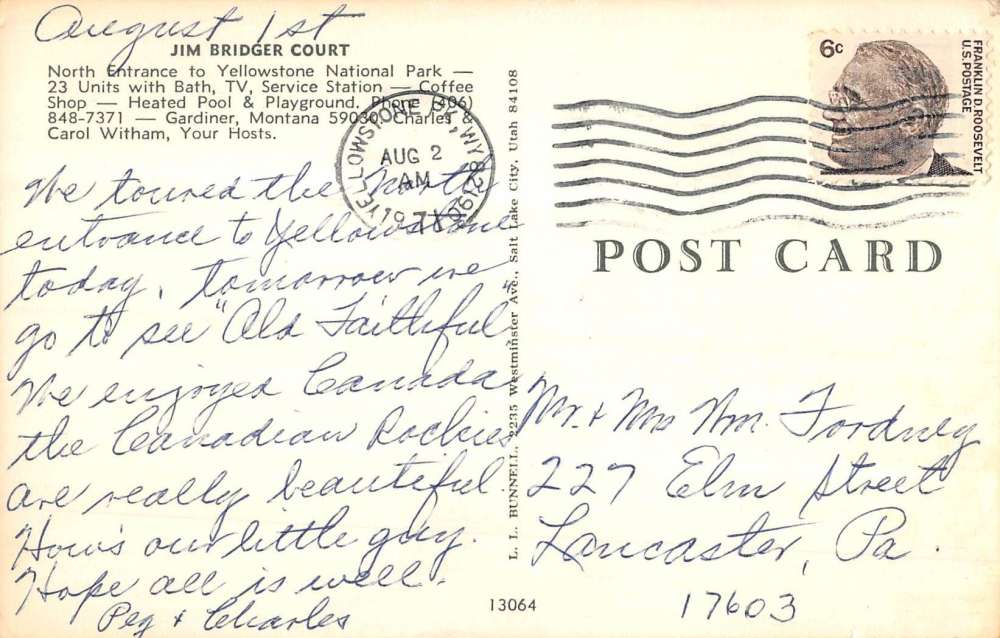 August 1st
JIM BRIDGER COURT
North Entrance to Yellowstone National Park —
23 Units with Bath, TV, Service Station — Coffee
Shop — Heated Pool & Playground. Phone (406)
848-7371 — Gardiner, Montana 59030. Charles &
Carol Witham, Your Hosts.
We toured the North
entrance to Yellowstone
today, tomorrow we
go to see "Old Faithful"
We enjoyed Canada
the Canadian Rockies
are really beautiful
How's our little guy.
Hope all is well.
Peg & Charles
YELLOWSTONE WY
AUG 2
AM
1971
L. L. BUNNELL, 2235 Westminster Ave., Salt Lake City, Utah 84108
6c
FRANKLIN D. ROOSEVELT
U.S. POSTAGE
POST CARD
Mr. & Mrs Wm. Fordney
227 Elm Street
Lancaster, Pa.
17603
13064